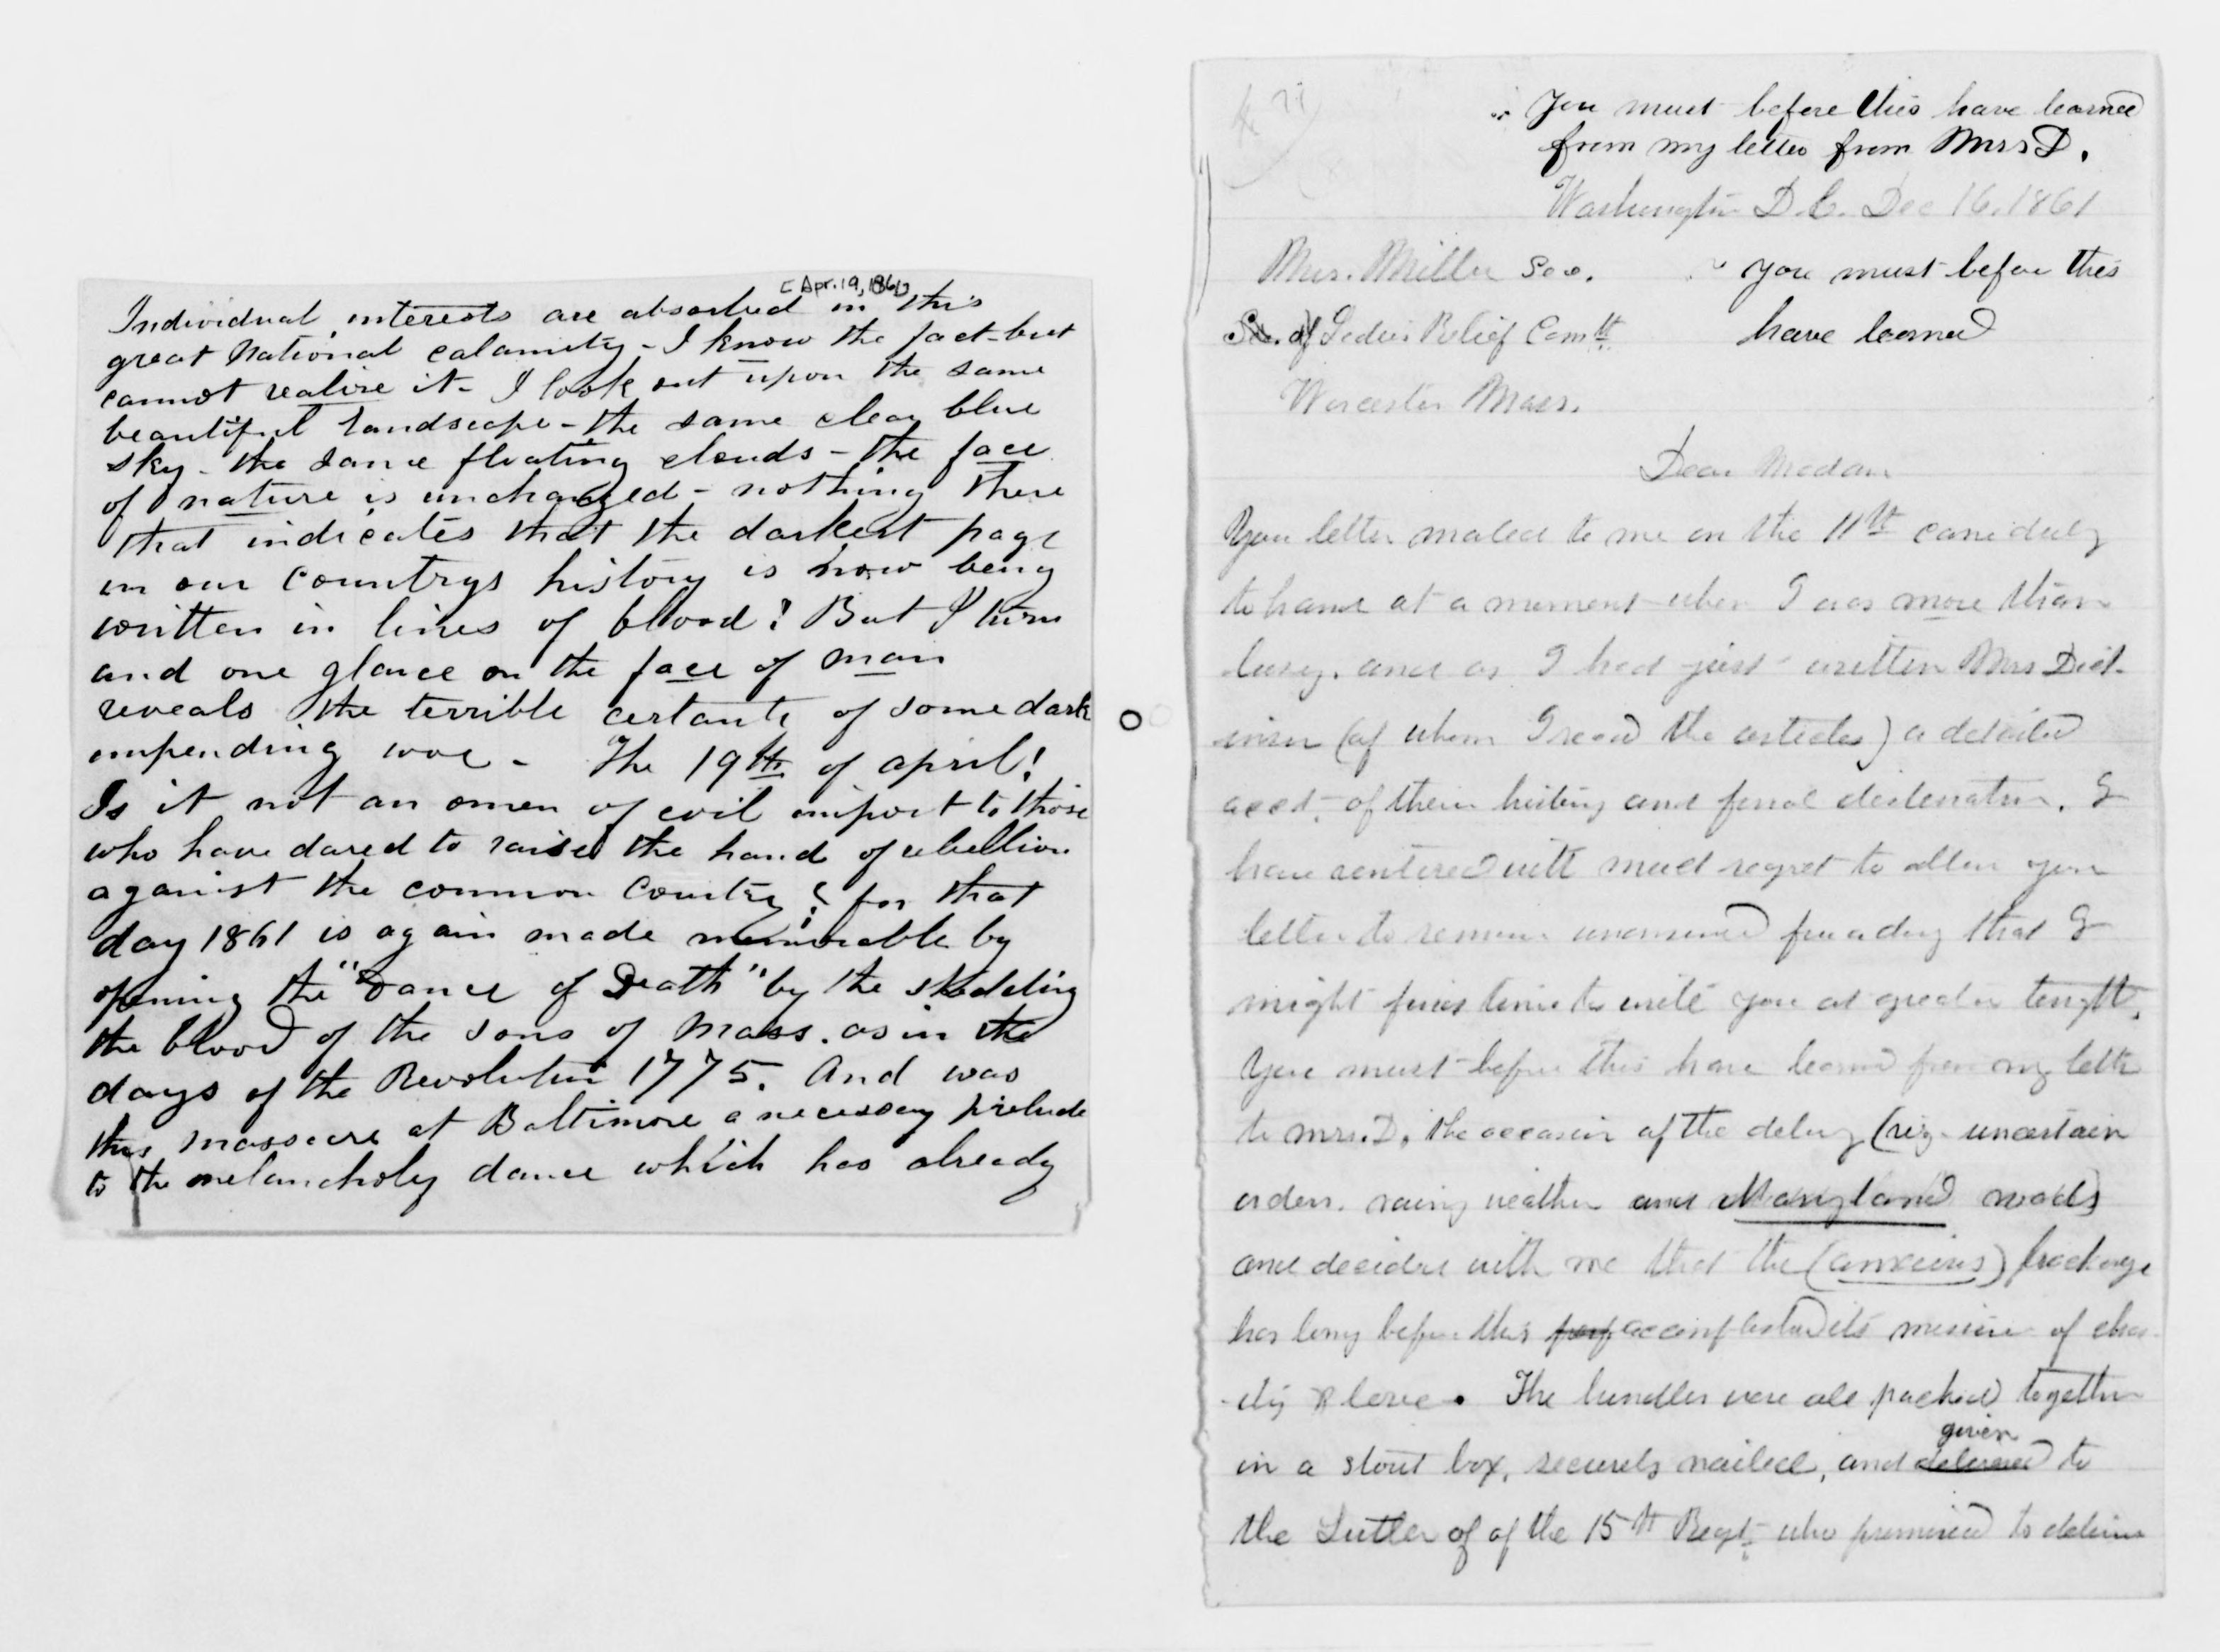 [Apr. 19, 1861]
Individual interests are absorbed in this
great National calamity - I know the fact - but
cannot realize it - I look out upon the same
beautiful landscape - the same clear blue
sky - the same floating clouds - the face
of nature is unchanged - nothing there
that indicates that the darkest page
in our countrys history is now being
written in lines of blood! But I turn
and one glance on the face of man
reveals the terrible certanty of some dark
impending woe - The 19th of april!
Is it not an omen of evil import to those
who have dared to raise the hand of rebellion
against the common Country? for that
day 1861 is again made memorable by
opening the "Dance of Death" by the shedding
the blood of the sons of Mass. as in the
days of the Revolution 1775. And was
this massacre at Baltimore a necessary prelude
to the melancholy dance which has already
You must before this have learned
from my letter from Mrs D.
Washington D.C. Dec 16. 1861
Mrs. Miller Sec. you must before this
Sec. of Ladies Relief Comtt have learned
Worcester Mass.
Dear Madam
Your letter mailed to me on the 11th came duly
to hand at a moment when I was more than
busy. and as I had just written Mrs Dick-
inson (of whom I recd the articles) a detailed
acct. of their history and final destination. I
have ventured with much regret to allow your
letter to remain unanswered that I
might find time to write you at greater length.
You must before this have learned from my letter
to Mrs. D. the occasion of the delay (viz - uncertain
orders. rainy weather and Maryland roads)
and decided with me that the (anxious) package
has long before this accomplished its mission of char-
-ity & love. The bundles were all packed together
in a stout box, securely nailed, and delivered given to
the Sutler of of the 15th Regt. who promised to deliver